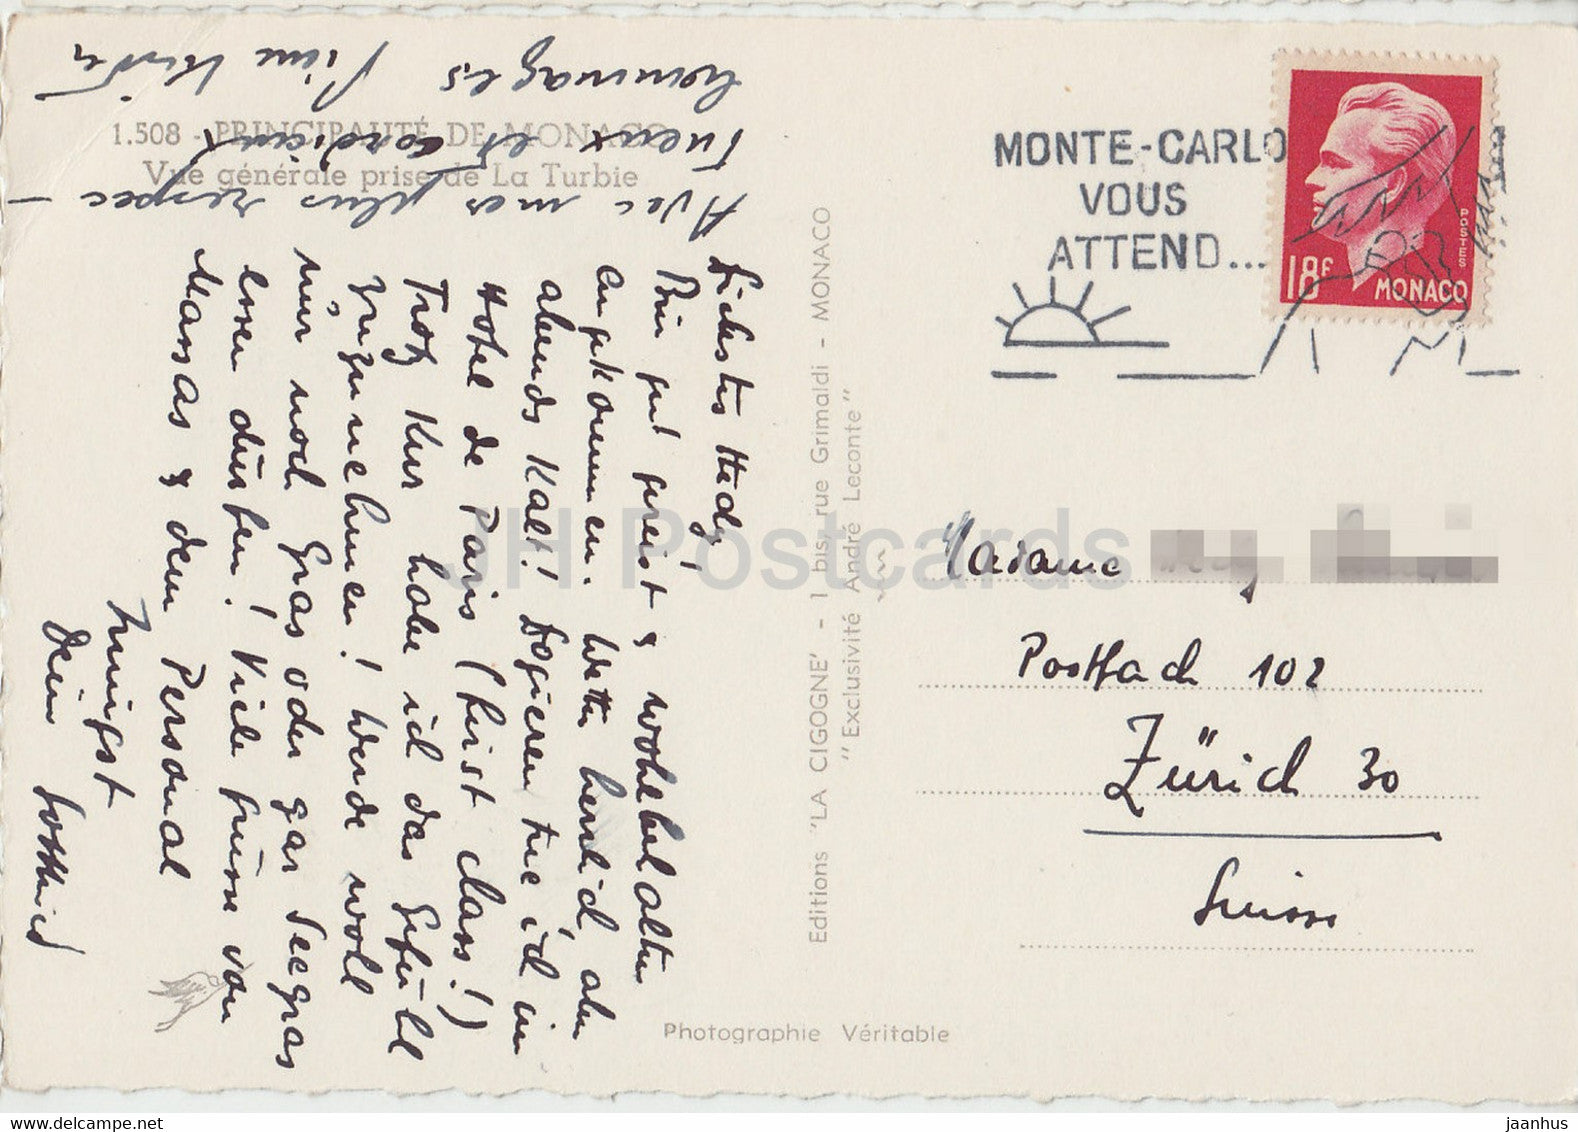 1.508 - PRINCIPAUTÉ DE MONACO
Vue générale prise de La Turbie
Liebstes Hedy,
Bin gut gereist & wohlbehalten
angekommen. Wetter herrlich, aber
abends kalt! Logieren tue ich im
Hotel de Paris (first class!)
Trotz Kur habe ich das Gefühl
zuzunehmen! Werde wohl
nur noch Gras oder gar Seegras
essen dürfen! Viele Grüsse von
Massas & dem Personal
Innigst
Dein
Avec mes plus respec-
tueux et cordiaux
hommages
Editions "LA CIGOGNE" - 1 bis, rue Grimaldi - MONACO
"Exclusivité André Leconte"
Photographie Véritable
MONTE-CARLO
VOUS
ATTEND...
POSTES
18F MONACO
Madame
Postfach 102
Zürich 30
Suisse
JH Postcards
jaanhus